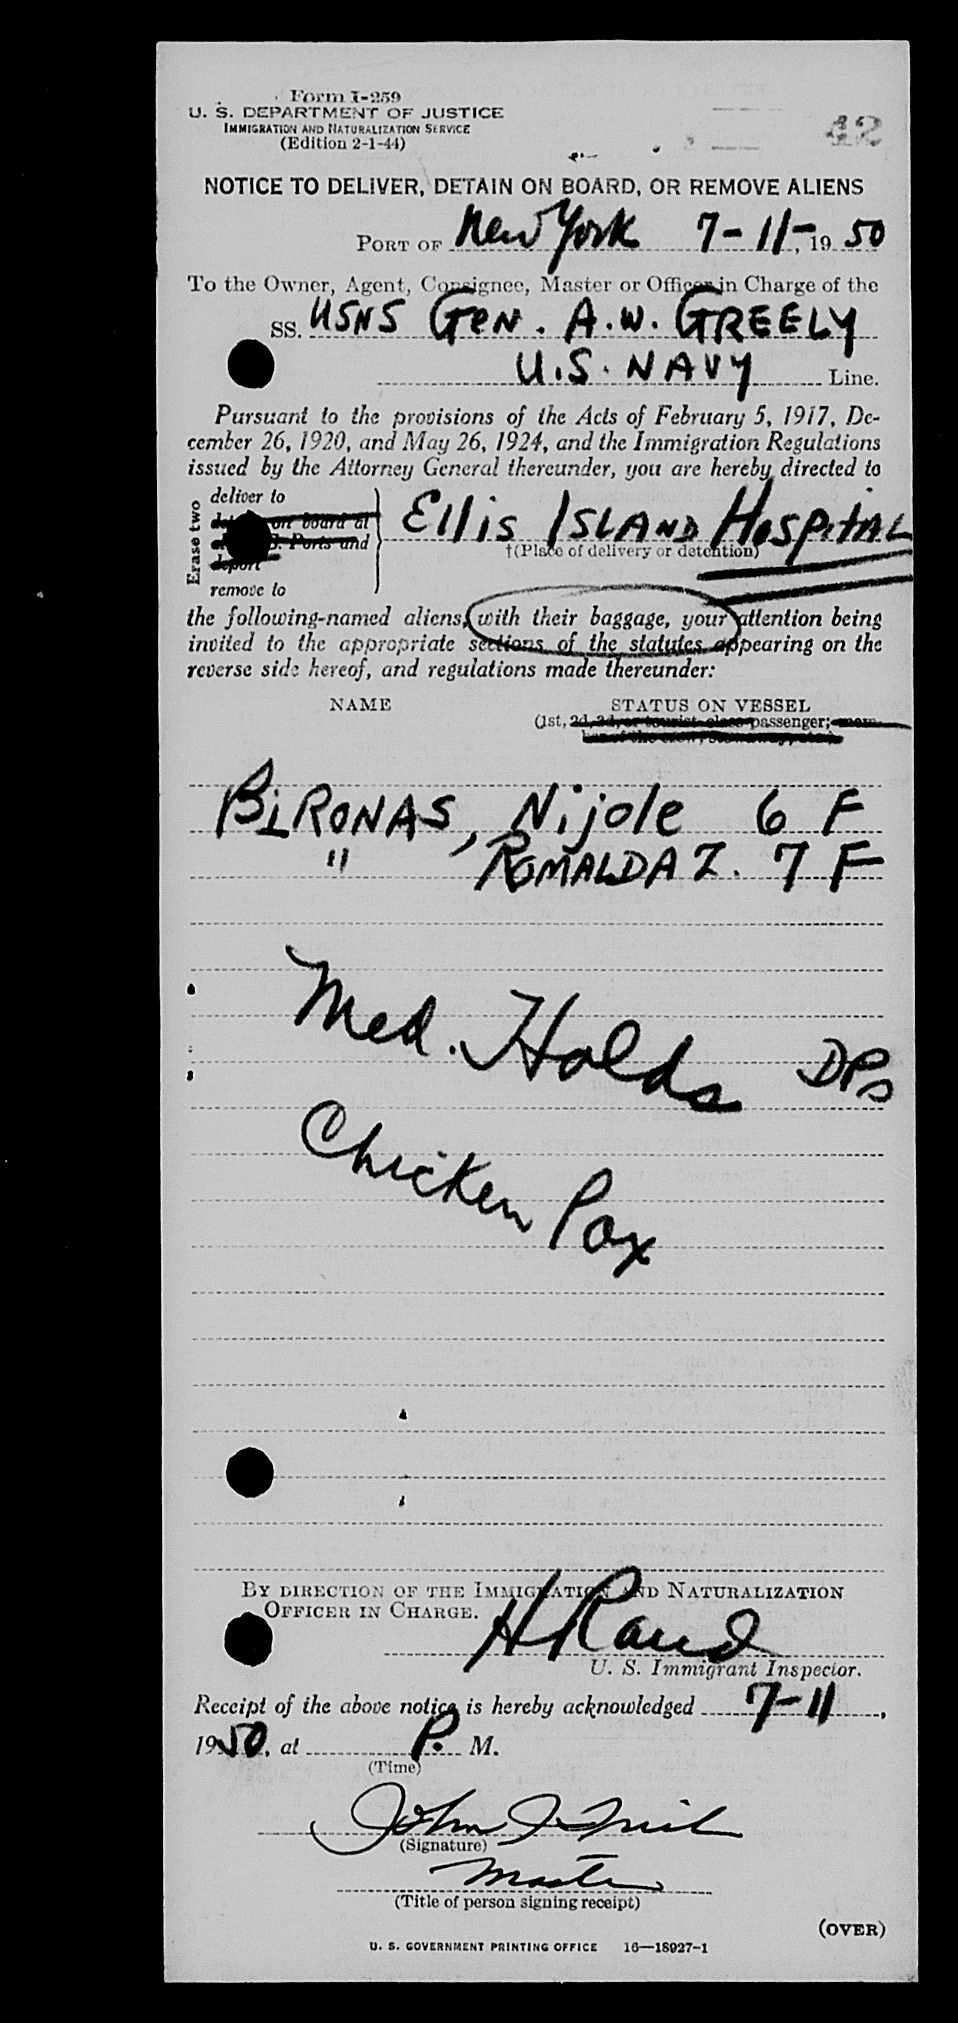 Form I-259
U. S. DEPARTMENT OF JUSTICE
IMMIGRATION AND NATURALIZATION SERVICE
(Edition 2-1-44)
42
NOTICE TO DELIVER, DETAIN ON BOARD, OR REMOVE ALIENS
PORT OF New York 7-11-, 19 50
To the Owner, Agent, Consignee, Master or Officer in Charge of the
SS. USNS GEN. A.W. GREELY
U.S. NAVY Line.
Pursuant to the provisions of the Acts of February 5, 1917, De-
cember 26, 1920, and May 26, 1924, and the Immigration Regulations
issued by the Attorney General thereunder, you are hereby directed to
Erase two
deliver to
on board at
Ports and
deport
remove to
Ellis Island Hospital
†(Place of delivery or detention)
the following-named aliens, with their baggage, your attention being
invited to the appropriate sections of the statutes appearing on the
reverse side hereof, and regulations made thereunder:
NAME STATUS ON VESSEL
(1st, 2d, 3d, or tourist class passenger; mem-
ber of the crew, stowaway, etc.)
BIRONAS, Nijole 6 F
" ROMALDA Z. 7 F
Med. Holds DPs
Chicken Pox
BY DIRECTION OF THE IMMIGRATION AND NATURALIZATION
OFFICER IN CHARGE.
H Rand
U. S. Immigrant Inspector.
Receipt of the above notice is hereby acknowledged 7-11,
1950, at P. M.
(Time)
John J.
(Signature)
Master
(Title of person signing receipt)
(OVER)
U. S. GOVERNMENT PRINTING OFFICE 16—18927-1